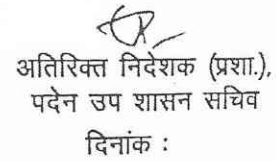 अतिरिक्त निदेशक (प्रशा.),
पदेन उप शासन सचिव
दिनांक :